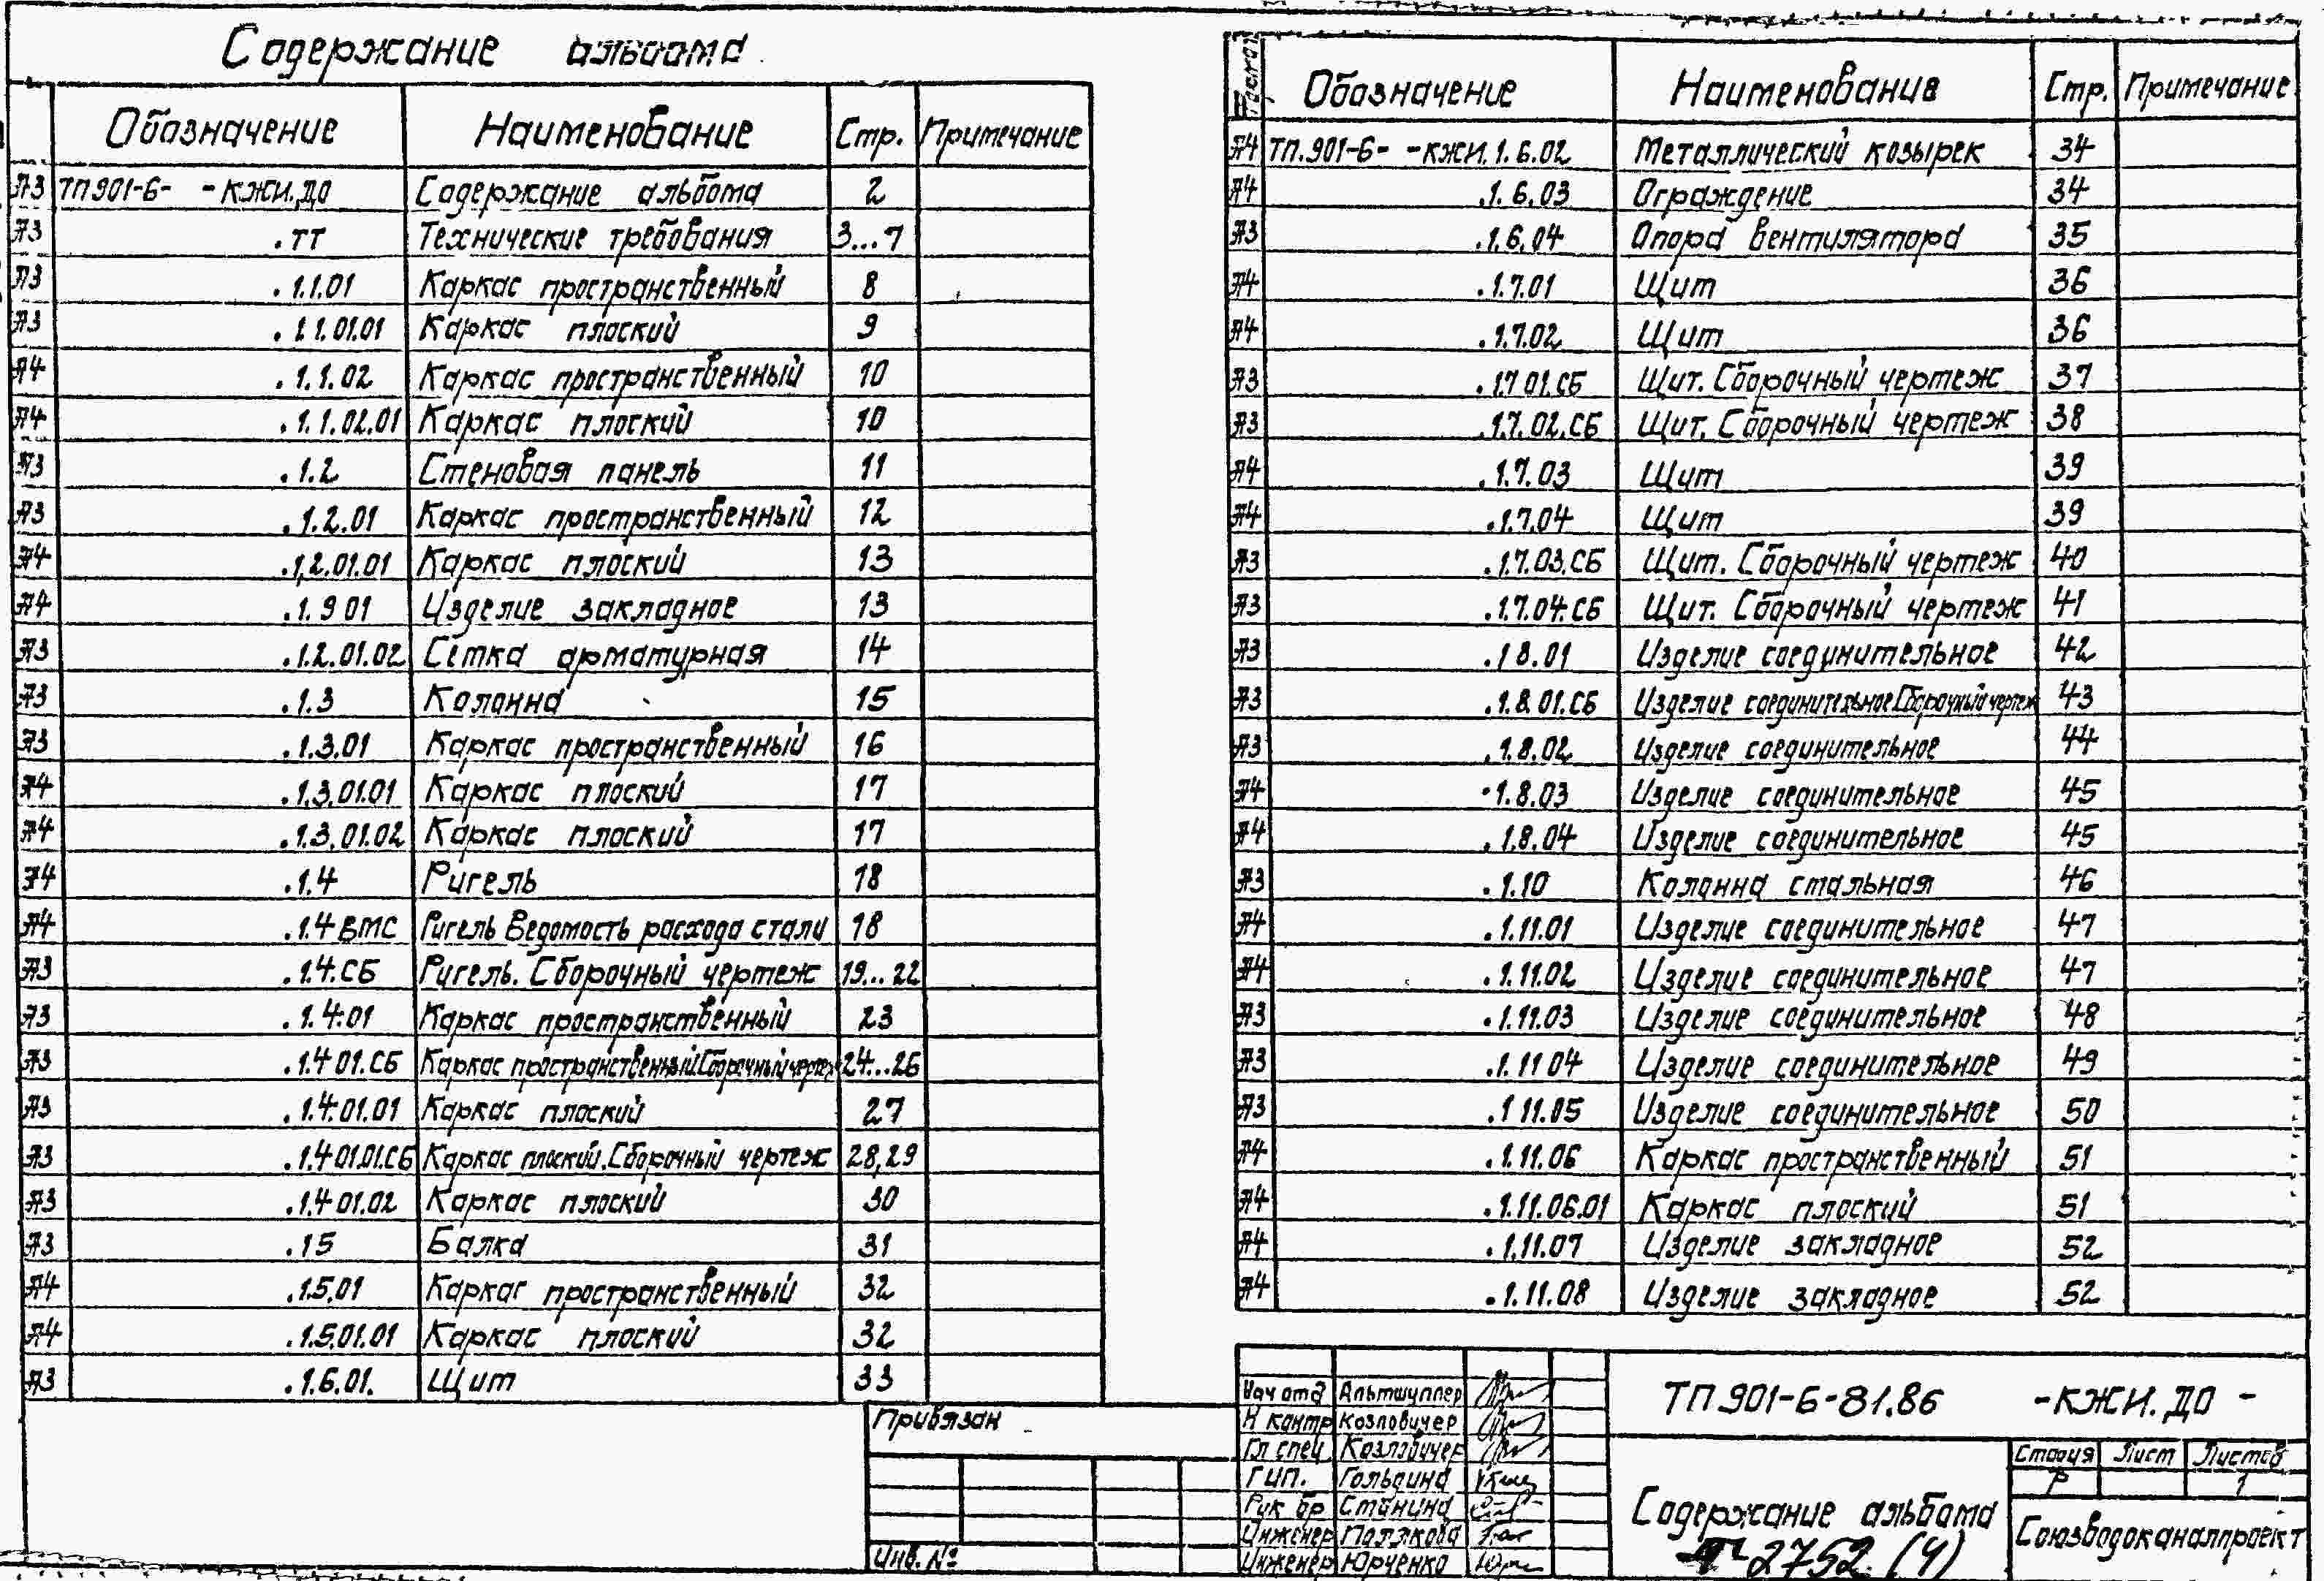 Содержание альбома
Обозначение Наименование Стр. Примечание
А3 ТП901-6- -КЖИ.ДО Содержание альбома 2
А3 .ТТ Технические требования 3...7
А3 .1.1.01 Каркас пространственный 8
А3 .1.1.01.01 Каркас плоский 9
А4 .1.1.02 Каркас пространственный 10
А4 .1.1.02.01 Каркас плоский 10
А3 .1.2 Стеновая панель 11
А3 .1.2.01 Каркас пространственный 12
А4 .1.2.01.01 Каркас плоский 13
А4 .1.9 01 Изделие закладное 13
А3 .1.2.01.02 Сетка арматурная 14
А3 .1.3 Колонна 15
А3 .1.3.01 Каркас пространственный 16
А4 .1.3.01.01 Каркас плоский 17
А4 .1.3.01.02 Каркас плоский 17
А4 .1.4 Ригель 18
А4 .1.4 ВМС Ригель Ведомость расхода стали 18
А3 .1.4.СБ Ригель. Сборочный чертеж 19...22
А3 .1.4.01 Каркас пространственный 23
А3 .1.4 01.СБ Каркас пространственный.Сборочный чертеж 24...26
А3 .1.4.01.01 Каркас плоский 27
А3 .1.4 01.01.СБ Каркас плоский.Сборочный чертеж 28,29
А3 .1.4 01.02 Каркас плоский 30
А3 .1 5 Балка 31
А4 .1.5.01 Каркас пространственный 32
А4 .1.5.01.01 Каркас плоский 32
А3 .1.6.01. Щит 33
Формат Обозначение Наименования Стр. Примечание
А4 ТП.901-6- -КЖИ.1.6.02 Металлический козырек 34
А4 .1.6.03 Ограждение 34
А3 .1.6.04 Опора вентилятора 35
А4 .1.7.01 Щит 36
А4 .1.7.02 Щит 36
А3 .1.7.01.СБ Щит. Сборочный чертеж 37
А3 .1.7.02.СБ Щит. Сборочный чертеж 38
А4 .1.7.03 Щит 39
А4 .1.7.04 Щит 39
А3 .1.7.03.СБ Щит. Сборочный чертеж 40
А3 .1.7.04.СБ Щит. Сборочный чертеж 41
А3 .1 8.01 Изделие соединительное 42
А3 .1.8.01.СБ Изделие соединительное.Сборочный чертеж 43
А3 .1.8.02 Изделие соединительное 44
А4 .1.8.03 Изделие соединительное 45
А4 .1.8.04 Изделие соединительное 45
А3 .1.10 Колонна стальная 46
А4 .1.11.01 Изделие соединительное 47
А4 .1.11.02 Изделие соединительное 47
А3 .1.11.03 Изделие соединительное 48
А3 .1.11 04 Изделие соединительное 49
А3 .1 11.05 Изделие соединительное 50
А4 .1.11.06 Каркас пространственный 51
А4 .1.11.06.01 Каркас плоский 51
А4 .1.11.07 Изделие закладное 52
А4 .1.11.08 Изделие закладное 52
Привязан
Инв. №
Нач отд Альтшуллер
Н контр Козловичер
Гл спец Козловичер
ГИП. Гольдина
Рук бр Станина
Инженер Полякова
Инженер Юрченко
ТП 901-6-81.86 -КЖИ.ДО -
Содержание альбома
Стадия Лист Листов
Р 1
Союзводоканалпроект
2752 (4)